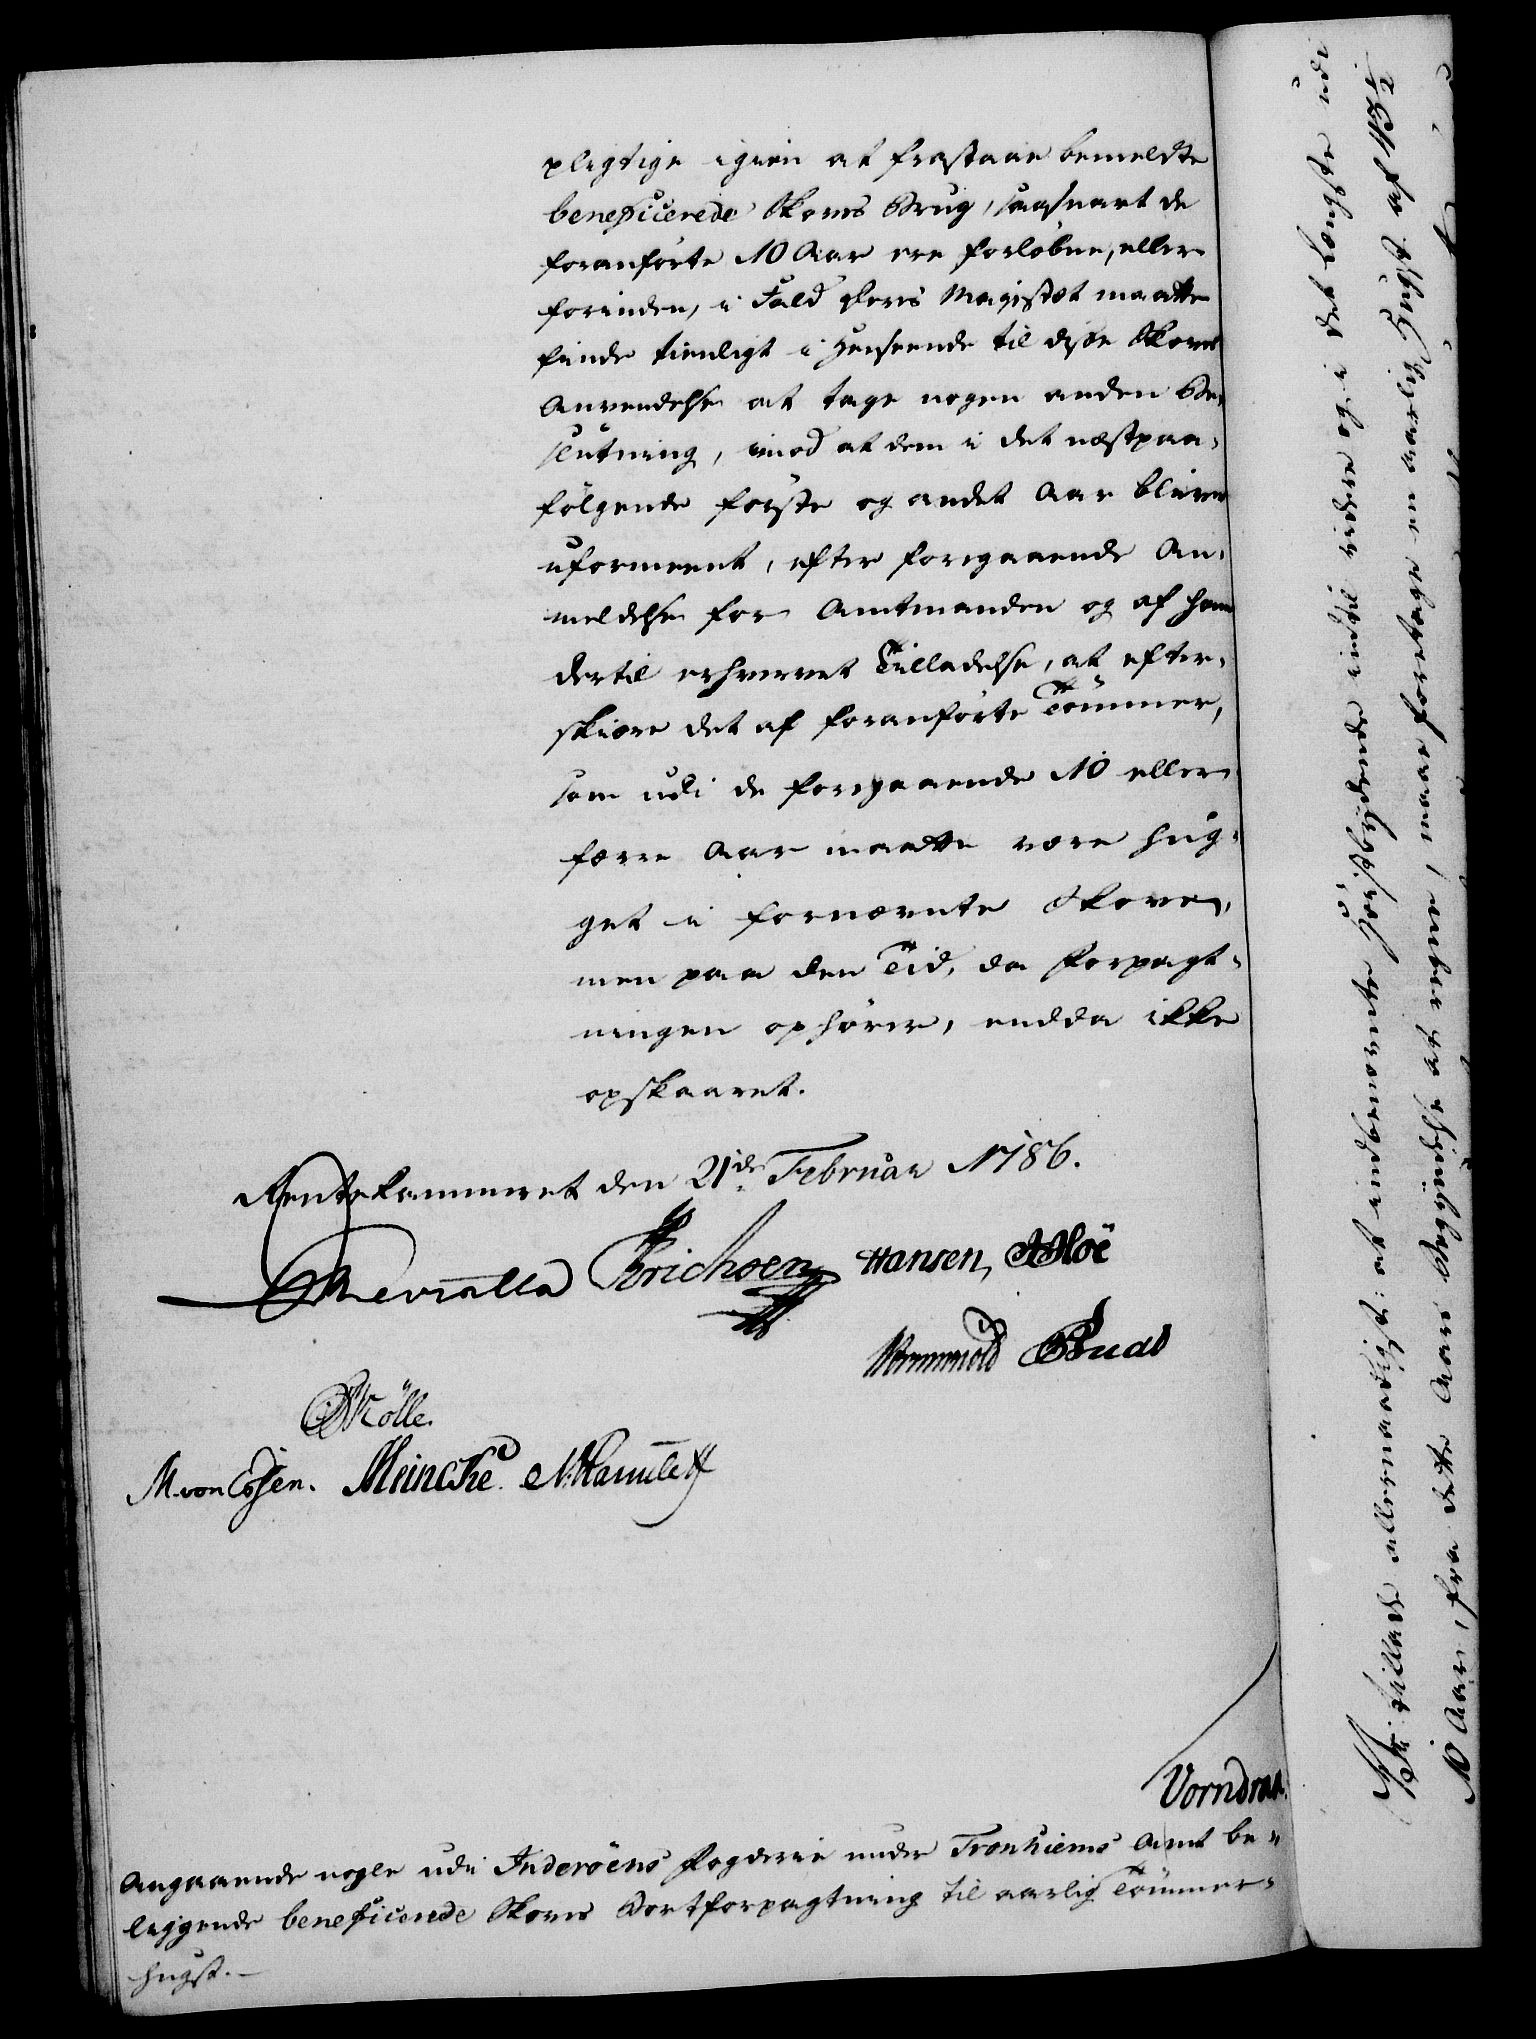 pligtige igien at frastaae bemeldte
beneficerede Skoves Brug, saasnart de
foranførte 10 Aar ere forløbne, eller
forinden, i Fald Deres Majestæt maatte
finde tienligt i Henseende til disse Skoves
Anvendelse at tage nogen anden Be-
slutning, imod at dem i det næstpaa-
følgende første og andet Aar bliver
uformeent, efter foregaaende An-
meldelse for Amtmanden og af ham
dertil erhvervet Tilladelse, at efter-
skiære det af foranførte Tømmer,
som udi de foregaaende 10 eller
færre Aar maatte være hug-
get i fornævnte Skove,
men paa den Tid, da Forpagt-
ningen ophører, endda ikke
opskaaret.
Rentekammeret den 21de Februar 1786.
Reventlow Erichsen Hansen,
Wormskiold
Mølle.
M. von Essen. Meincke.
Vorndran.
Angaaende nogle udi Inderøens Fogderie under Tronhiems Amt be-
liggende beneficerede Skoves Bortforpagtning til aarlig Tømmer-
hugst.
Vi tillade allernaadigst: at indbemeldte Høistbydende indtil videre og i det Længste udi
10 Aar, fra dette Aars Begyndelse at regne, maae foretage en aarlig Hugst af 13 1/2